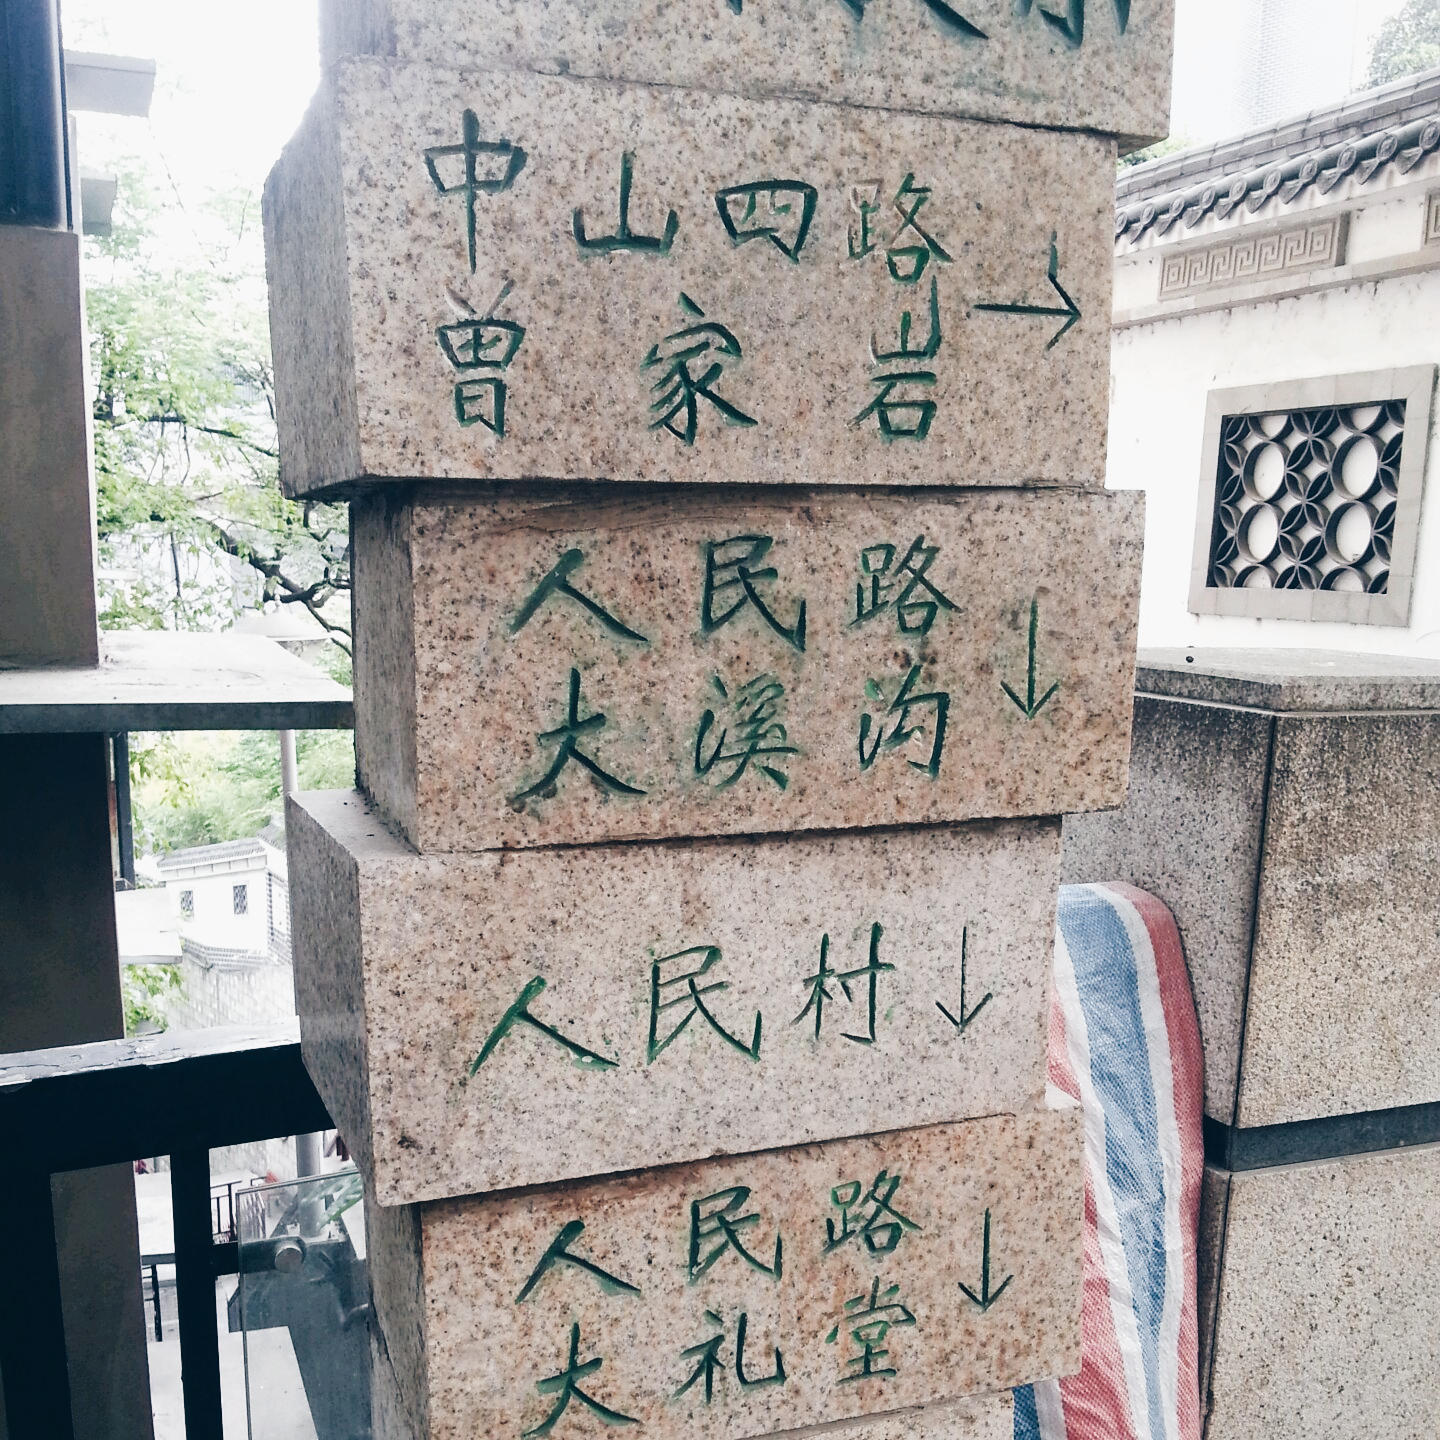 中山四路
曾家岩
→
人民路
大溪沟
↓
人民村
↓
人民路
大礼堂
↓